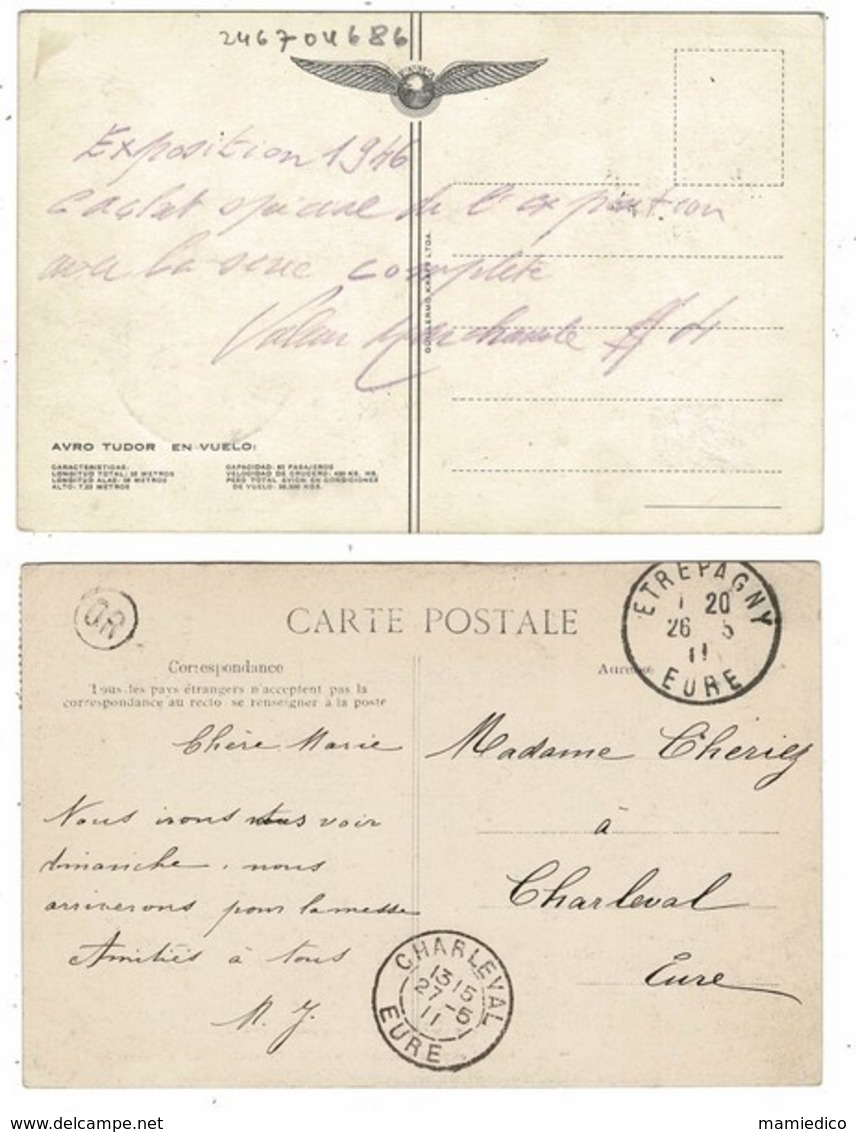 246704686
Exposition 1946
cachet spéciale de l'exposition
avec la serie complete
Valeur Marchande
GUILLERMO KRAFT LTDA.
AVRO TUDOR EN VUELO:
CARACTERISTICAS:
LONGITUD TOTAL:
LONGITUD ALAS: METROS
ALTO: METROS
CAPACIDAD: 60 PASAJEROS
VELOCIDAD DE CRUCERO: KS. HS.
PESO TOTAL AVION EN CONDICIONES
DE VUELO: KGS.
OR
CARTE POSTALE
ETREPAGNY
20
26 5
11
EURE
Correspondance
Tous les pays étrangers n'acceptent pas la
correspondance au recto se renseigner à la poste
Adresse
Chère Marie
Nous irons vous voir
dimanche, nous
arriverons pour la messe
Amitiés à tous
M. J.
Madame
à
Charleval
Eure
CHARLEVAL
13 15
27 -5
11
EURE
mamiedico